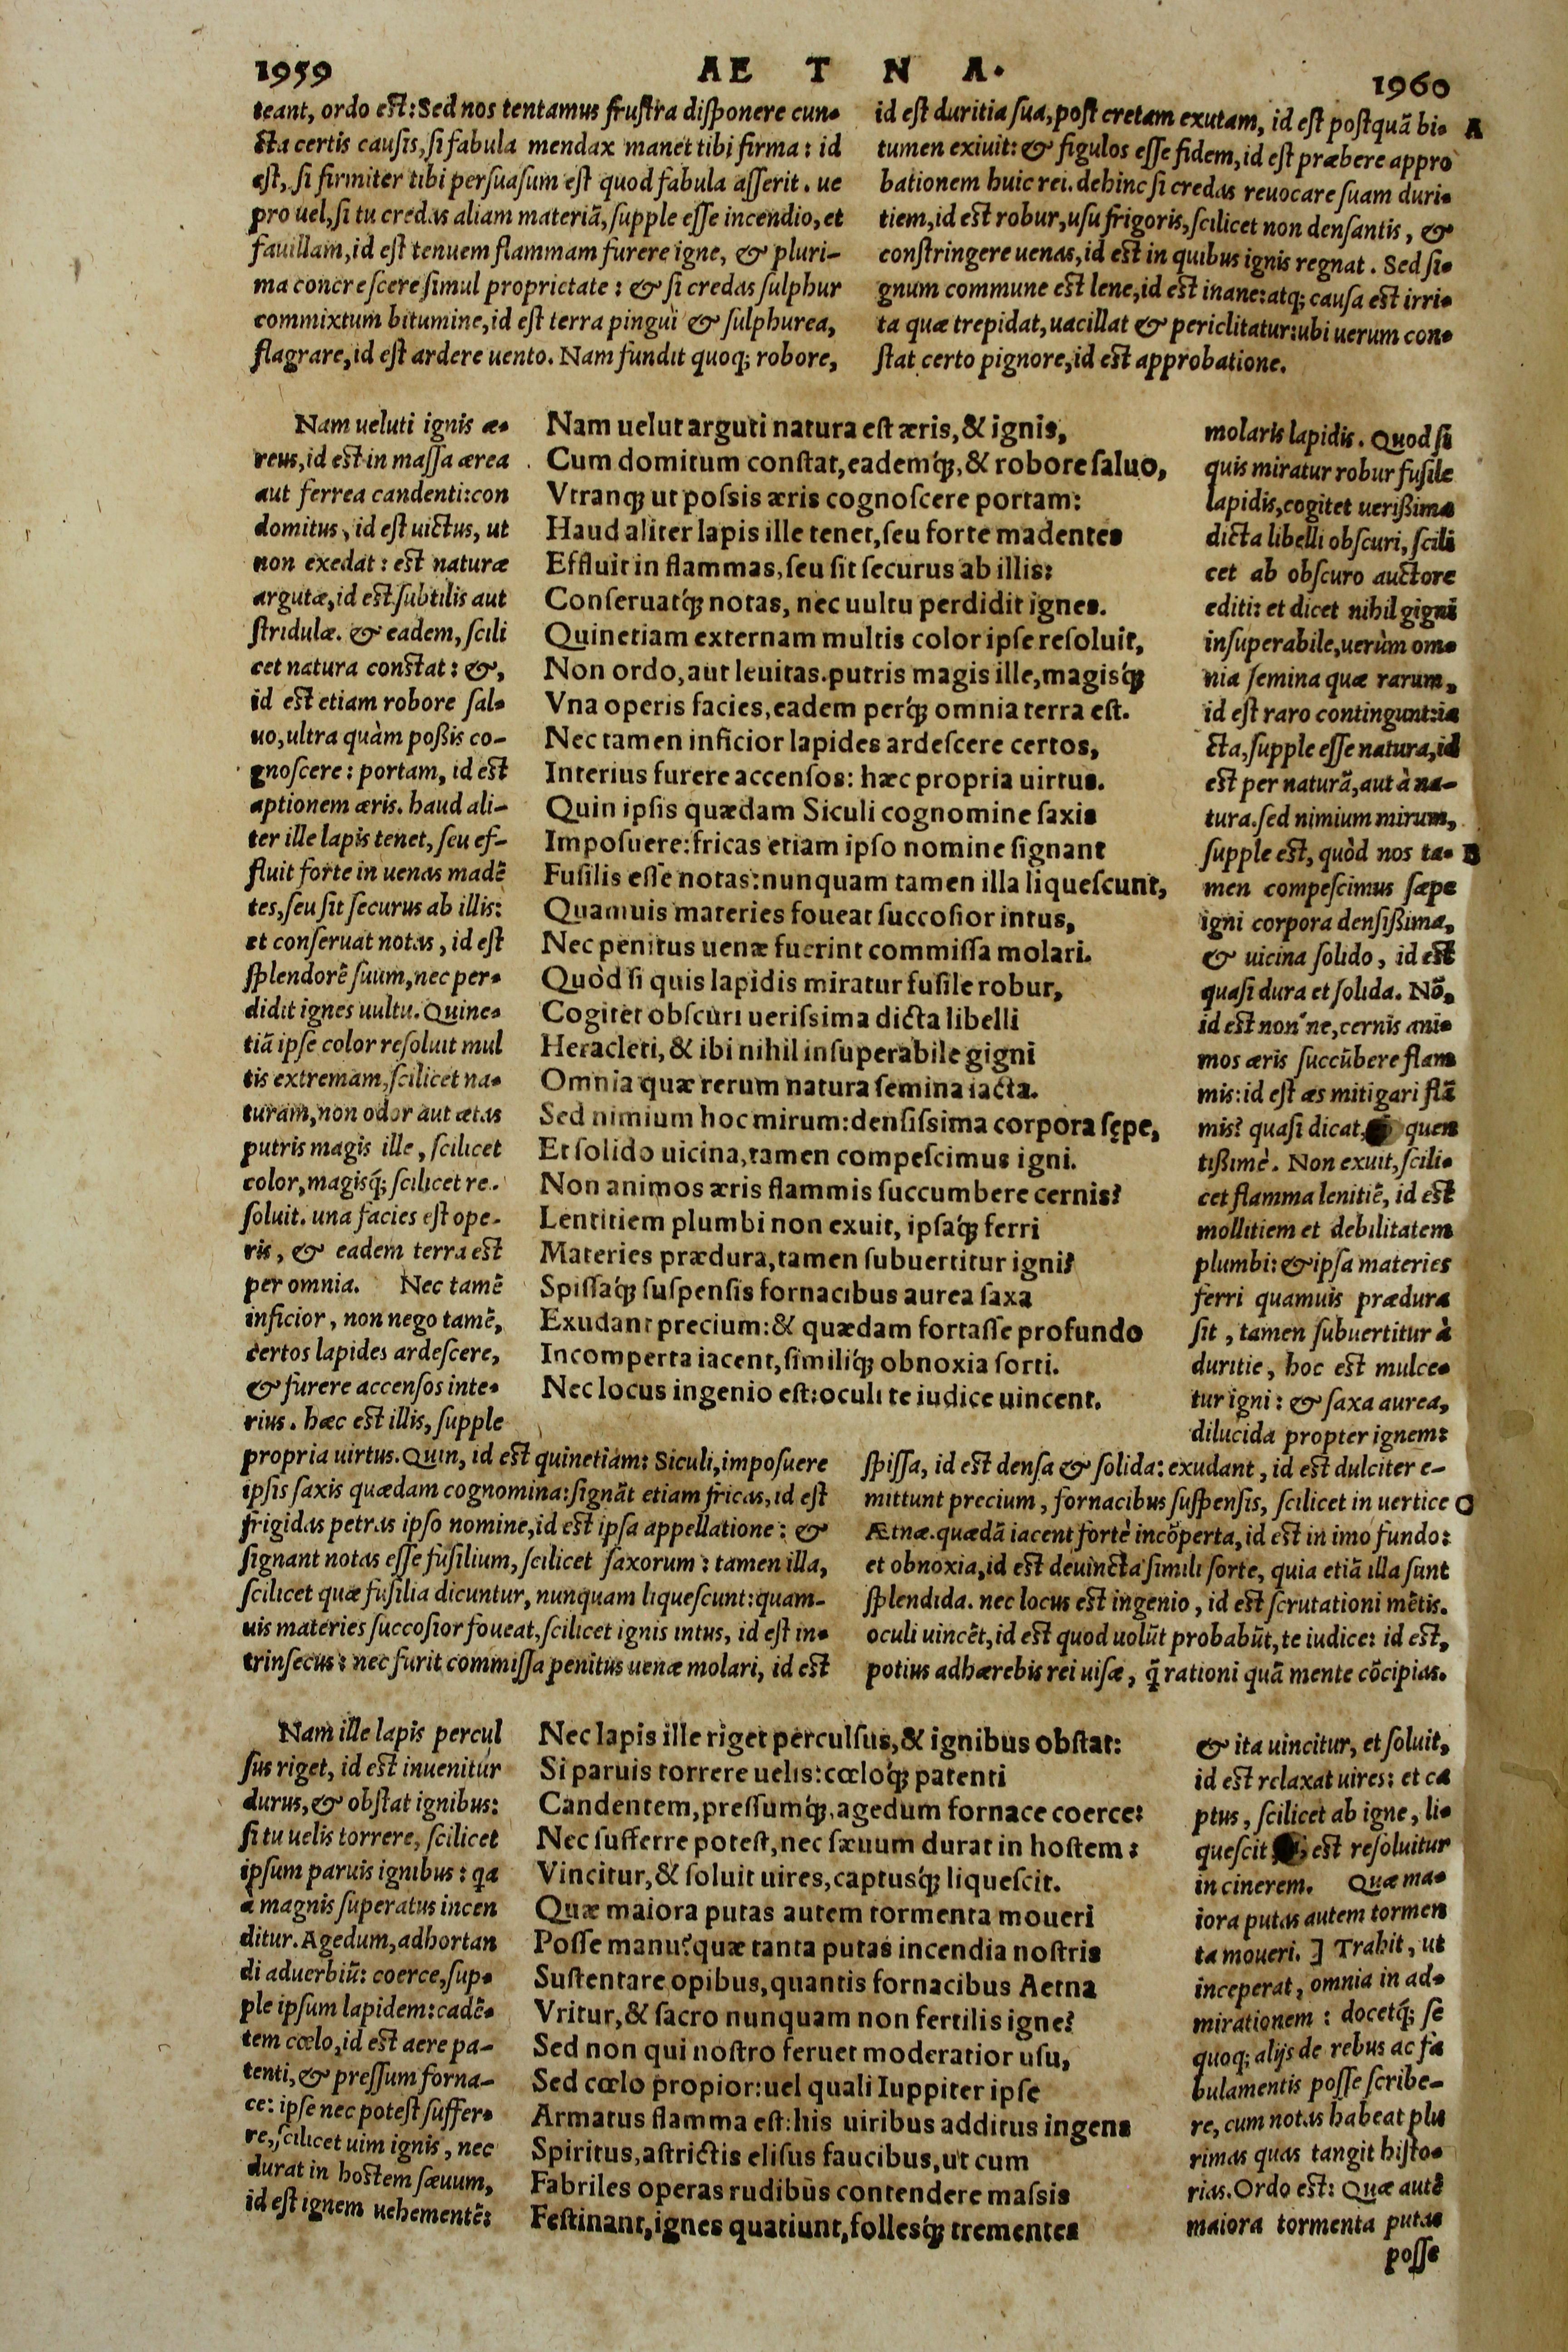 1959
AE T N A.
1960
teant, ordo eſt: Sed nos tentamus fruſtra diſponere cun-
cta certis cauſis, ſi fabula mendax manet tibi firma: id
eſt, ſi firmiter tibi perſuaſum eſt quod fabula aſſerit. ue
pro uel, ſi tu credas aliam materiā, ſupple eſſe incendio, et
fauillam, id eſt tenuem flammam furere igne, & pluri-
ma concreſcere ſimul proprietate: & ſi credas ſulphur
commixtum bitumine, id eſt terra pingui & ſulphurea,
flagrare, id eſt ardere uento. Nam fundit quoq; robore,
id eſt duritia ſua, poſt cretam exutam, id eſt poſtquā bi-
tumen exiuit: & figulos eſſe fidem, id eſt præbere appro
bationem huic rei. dehinc ſi credas reuocare ſuam duri-
tiem, id eſt robur, uſu frigoris, ſcilicet non denſantis, &
conſtringere uenas, id eſt in quibus ignis regnat. Sed ſi-
gnum commune eſt lene, id eſt inane: atq; cauſa eſt irri-
ta quæ trepidat, uacillat & periclitatur: ubi uerum con-
ſtat certo pignore, id eſt approbatione.
A
Nam ueluti ignis æ-
reus, id eſt in maſſa ærea
aut ferrea candenti: con
domitus, id eſt uictus, ut
non exedat: eſt naturæ
argutæ, id eſt ſubtilis aut
ſtridulæ. & eadem, ſcili
cet natura conſtat: &,
id eſt etiam robore ſal-
uo, ultra quàm poßis co-
gnoſcere: portam, id eſt
aptionem æris. haud ali-
ter ille lapis tenet, ſeu ef-
fluit forte in uenas madē
tes, ſeu ſit ſecurus ab illis:
et conſeruat notas, id eſt
ſplendorē ſuum, nec per-
didit ignes uultu. Quine-
tiā ipſe color reſoluit mul
tis extremam, ſcilicet na-
turam, non odor aut ætas
putris magis ille, ſcilicet
color, magisq́; ſcilicet re-
ſoluit. una facies eſt ope-
ris, & eadem terra eſt
per omnia. Nec tamē
inficior, non nego tamē,
certos lapides ardeſcere,
& furere accenſos inte-
rius. hæc eſt illis, ſupple
Nam uelut arguti natura eſt æris, & ignis,
Cum domitum conſtat, eademq́;, & robore ſaluo,
Vtranq; ut poſsis æris cognoſcere portam:
Haud aliter lapis ille tenet, ſeu forte madentes
Effluit in flammas, ſeu ſit ſecurus ab illis:
Conſeruatq́; notas, nec uultu perdidit ignes.
Quinetiam externam multis color ipſe reſoluit,
Non ordo, aut leuitas. putris magis ille, magisq́;
Vna operis facies, eadem perq́; omnia terra eſt.
Nec tamen inficior lapides ardeſcere certos,
Interius furere accenſos: hæc propria uirtus.
Quin ipſis quædam Siculi cognomine ſaxis
Impoſuere: fricas etiam ipſo nomine ſignant
Fuſilis eſſe notas: nunquam tamen illa liqueſcunt,
Quamuis materies foueat ſuccoſior intus,
Nec penitus uenæ fuerint commiſſa molari.
Quòd ſi quis lapidis miratur fuſile robur,
Cogitet obſcuri ueriſsima dicta libelli
Heracleti, & ibi nihil inſuperabile gigni
Omnia quæ rerum natura ſemina iacta.
Sed nimium hoc mirum: denſiſsima corpora ſępe,
Et ſolido uicina, tamen compeſcimus igni.
Non animos æris flammis ſuccumbere cernis?
Lentitiem plumbi non exuit, ipſaq́; ferri
Materies prædura, tamen ſubuertitur igni?
Spiſſaq́; ſuſpenſis fornacibus aurea ſaxa
Exudant precium: & quædam fortaſſe profundo
Incomperta iacent, ſimiliq́; obnoxia ſorti.
Nec locus ingenio eſt: oculi te iudice uincent.
molaris lapidis. Quod ſi
quis miratur robur fuſile
lapidis, cogitet uerißima
dicta libelli obſcuri, ſcili
cet ab obſcuro auctore
editi: et dicet nihil gigni
inſuperabile, uerùm om-
nia ſemina quæ rarum,
id eſt raro contingunt: ia
cta, ſupple eſſe natura, id
eſt per naturā, aut à na-
tura. ſed nimium mirum,
ſupple eſt, quòd nos ta-
men compeſcimus ſæpe
igni corpora denſißima,
& uicina ſolido, id eſt
quaſi dura et ſolida. Nō,
id eſt non'ne, cernis ani-
mos æris ſuccūbere flam
mis: id eſt æs mitigari flā
mis? quaſi dicat, quen
tißimè. Non exuit, ſcili-
cet flamma lenitiē, id eſt
mollitiem et debilitatem
plumbi: & ipſa materies
ferri quamuis prædura
ſit, tamen ſubuertitur à
duritie, hoc eſt mulce-
tur igni: & ſaxa aurea,
dilucida propter ignem:
B
propria uirtus. Quin, id eſt quinetiam: Siculi, impoſuere
ipſis ſaxis quædam cognomina: ſignāt etiam fricas, id eſt
frigidas petras ipſo nomine, id eſt ipſa appellatione: &
ſignant notas eſſe fuſilium, ſcilicet ſaxorum: tamen illa,
ſcilicet quæ fuſilia dicuntur, nunquam liqueſcunt: quam-
uis materies ſuccoſior foueat, ſcilicet ignis intus, id eſt in-
trinſecus: nec furit commiſſa penitus uenæ molari, id eſt
ſpiſſa, id eſt denſa & ſolida: exudant, id eſt dulciter e-
mittunt precium, fornacibus ſuſpenſis, ſcilicet in uertice
Ætnæ. quædā iacent fortè incōperta, id eſt in imo fundo:
et obnoxia, id eſt deuincta ſimili ſorte, quia etiā illa ſunt
ſplendida. nec locus eſt ingenio, id eſt ſcrutationi mētis.
oculi uincēt, id eſt quod uolūt probabūt, te iudice: id eſt,
potius adhærebis rei uiſæ, q̄ rationi quā mente cōcipias.
C
Nam ille lapis percul
ſus riget, id eſt inuenitur
durus, & obſtat ignibus:
ſi tu uelis torrere, ſcilicet
ipſum paruis ignibus: qa
à magnis ſuperatus incen
ditur. Agedum, adhortan
di aduerbiū: coerce, ſup-
ple ipſum lapidem: cadē-
tem cœlo, id eſt aere pa-
tenti, & preſſum forna-
ce: ipſe nec poteſt ſuffer-
re, ſcilicet uim ignis, nec
durat in hoſtem ſæuum,
id eſt ignem uehementē:
Nec lapis ille riget perculſus, & ignibus obſtat:
Si paruis torrere uelis: cœloq́; patenti
Candentem, preſſumq́;, agedum fornace coerce:
Nec ſufferre poteſt, nec ſæuum durat in hoſtem:
Vincitur, & ſoluit uires, captusq́; liqueſcit.
Quæ maiora putas autem tormenta moueri
Poſſe manu? quæ tanta putas incendia noſtris
Suſtentare opibus, quantis fornacibus Aetna
Vritur, & ſacro nunquam non fertilis igne?
Sed non qui noſtro feruet moderatior uſu,
Sed cœlo propior: uel quali Iuppiter ipſe
Armatus flamma eſt: his uiribus additus ingens
Spiritus, aſtrictis eliſus faucibus, ut cum
Fabriles operas rudibus contendere maſsis
Feſtinant, ignes quatiunt, follesq́; trementes
& ita uincitur, et ſoluit,
id eſt relaxat uires: et ca
ptus, ſcilicet ab igne, li-
queſcit eſt reſoluitur
in cinerem. Quæ ma-
iora putas autem tormen
ta moueri. ] Trahit, ut
inceperat, omnia in ad-
mirationem: docetq́; ſe
quoq; alijs de rebus ac fa
bulamentis poſſe ſcribe-
re, cum notas habeat plu
rimas quas tangit hiſto-
rias. Ordo eſt: Quæ autē
maiora tormenta putas
poſſe